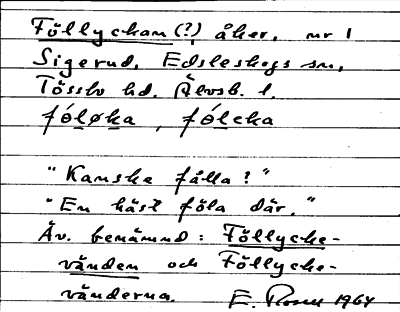 Föllyckan (?) åker, nr 1
Sigerud, Edsleskogs sn,
Tössbo hd. Älvsb. l.
fóløka, fólcka
"Kanske fålla?"
"En häst föla där."
Äv. benämnd: Föllycke-
vänden och Föllycke-
vänderna. E. Rosén 1964